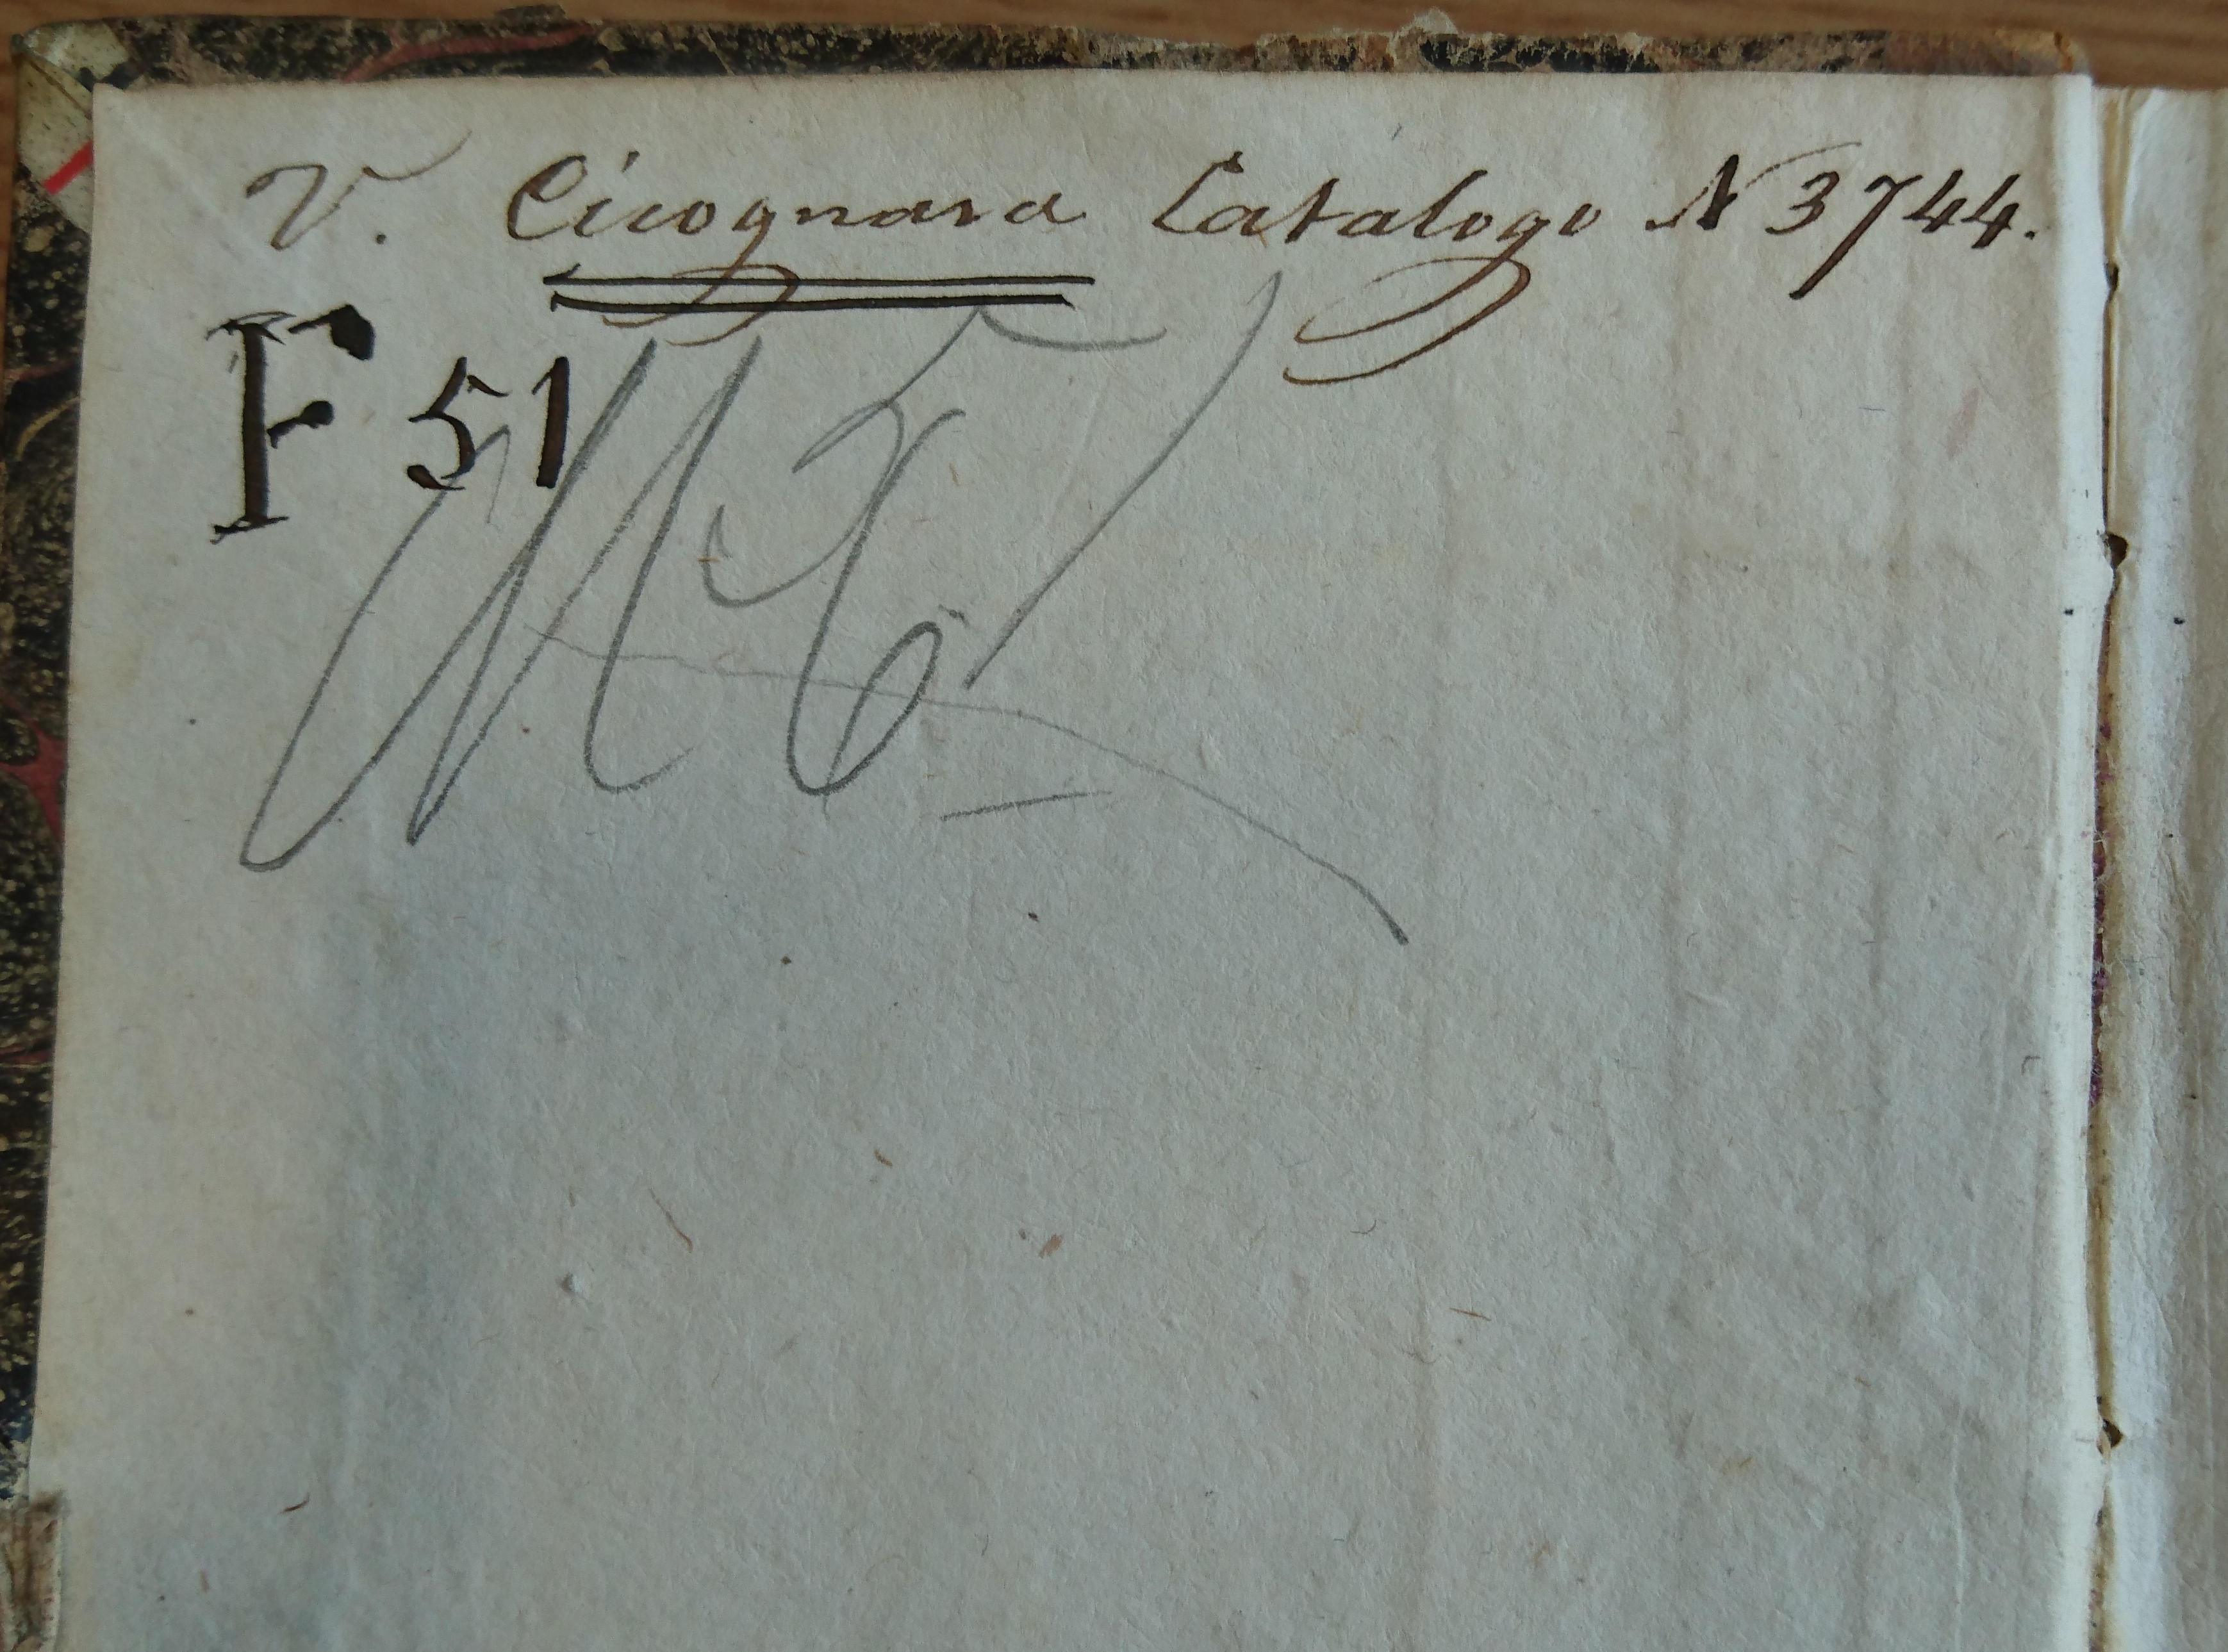 V. Cicognara Catalogo N 3744.
F 51